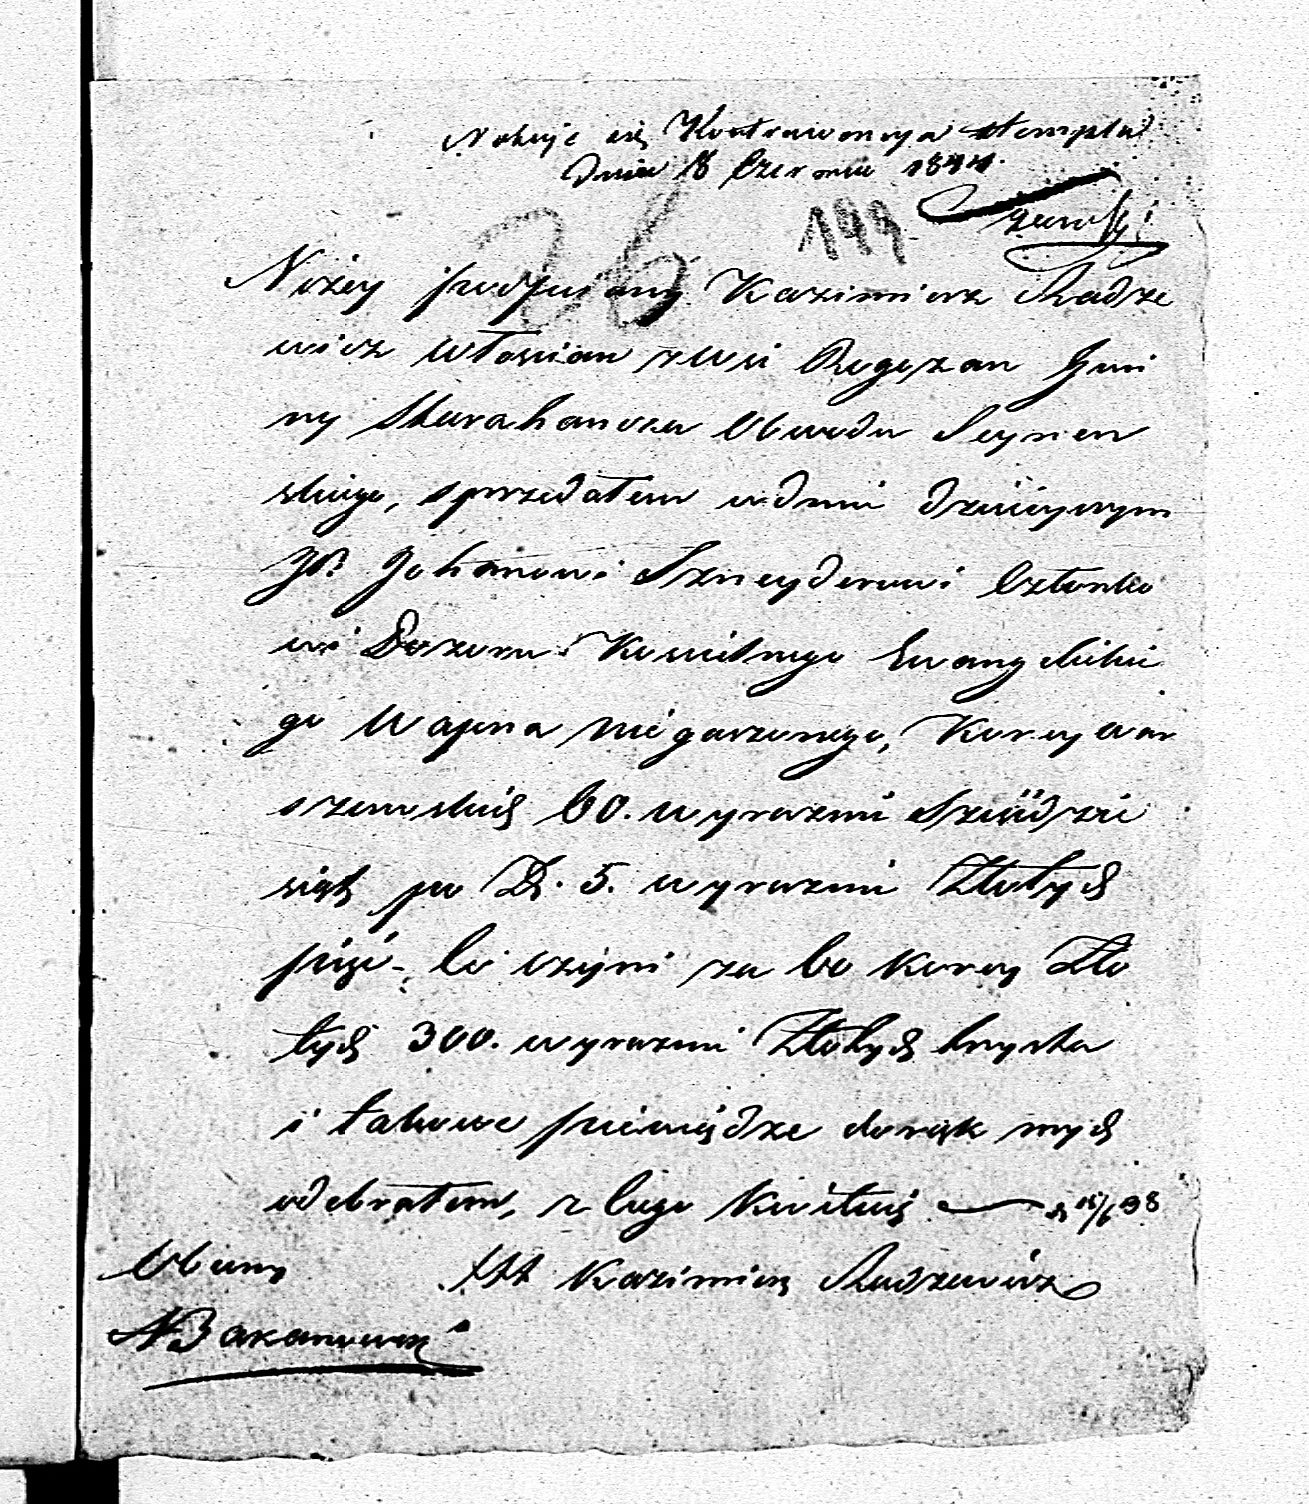 Notuje się Kontrawencya stempla
Dnia 18 Czerwca 1844.
26 199
Niżey podpisany Kazimierz Radze
wicz Włościan z wsi Rogożan Gmi
ny Obwodu Seynen
skiego, sprzedałem w dniu dzisieyszym
JP. Johanowi Szneyderowi Członko
wi Dozoru Kościelnego Ewangelickie
go Wapna nie gaszonego, Korcy war
szawskich 60. wyraźnie Sześćdzie
siąt po Zł. 5. wyraźnie Złotych
pięć - Co czyni za 60 Korcy Zło
tych 300. wyraźnie Złotych trzysta
i takowe pieniądze do rąk mych
odebrałem, z czego Kwituię
Obecny XXX Kazimierz Radzewicz